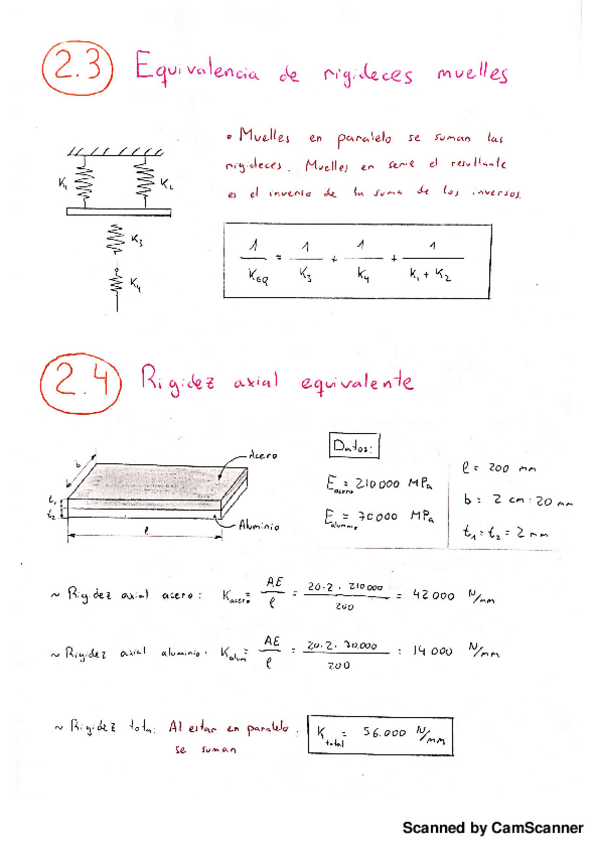 2.3 Equivalencia de rigideces muelles
• Muelles en paralelo se suman las
rigideces. Muelles en serie el resultante
es el inverso de la suma de los inversos.
K1 K2
K3
K4
1/KEQ = 1/K3 + 1/K4 + 1/(K1 + K2)
2.4 Rigidez axial equivalente
Datos:
Eacero = 210000 MPa
Ealuminio = 70000 MPa
l = 200 mm
b = 2 cm = 20 mm
t1 = t2 = 2 mm
b
t1
t2
l
Acero
Aluminio
~ Rigidez axial acero: Kacero = AE/l = 20·2·210000/200 = 42000 N/mm
~ Rigidez axial aluminio: Kalum = AE/l = 20·2·70.000/200 = 14000 N/mm
~ Rigidez total: Al estar en paralelo,
se suman
Ktotal = 56.000 N/mm
Scanned by CamScanner